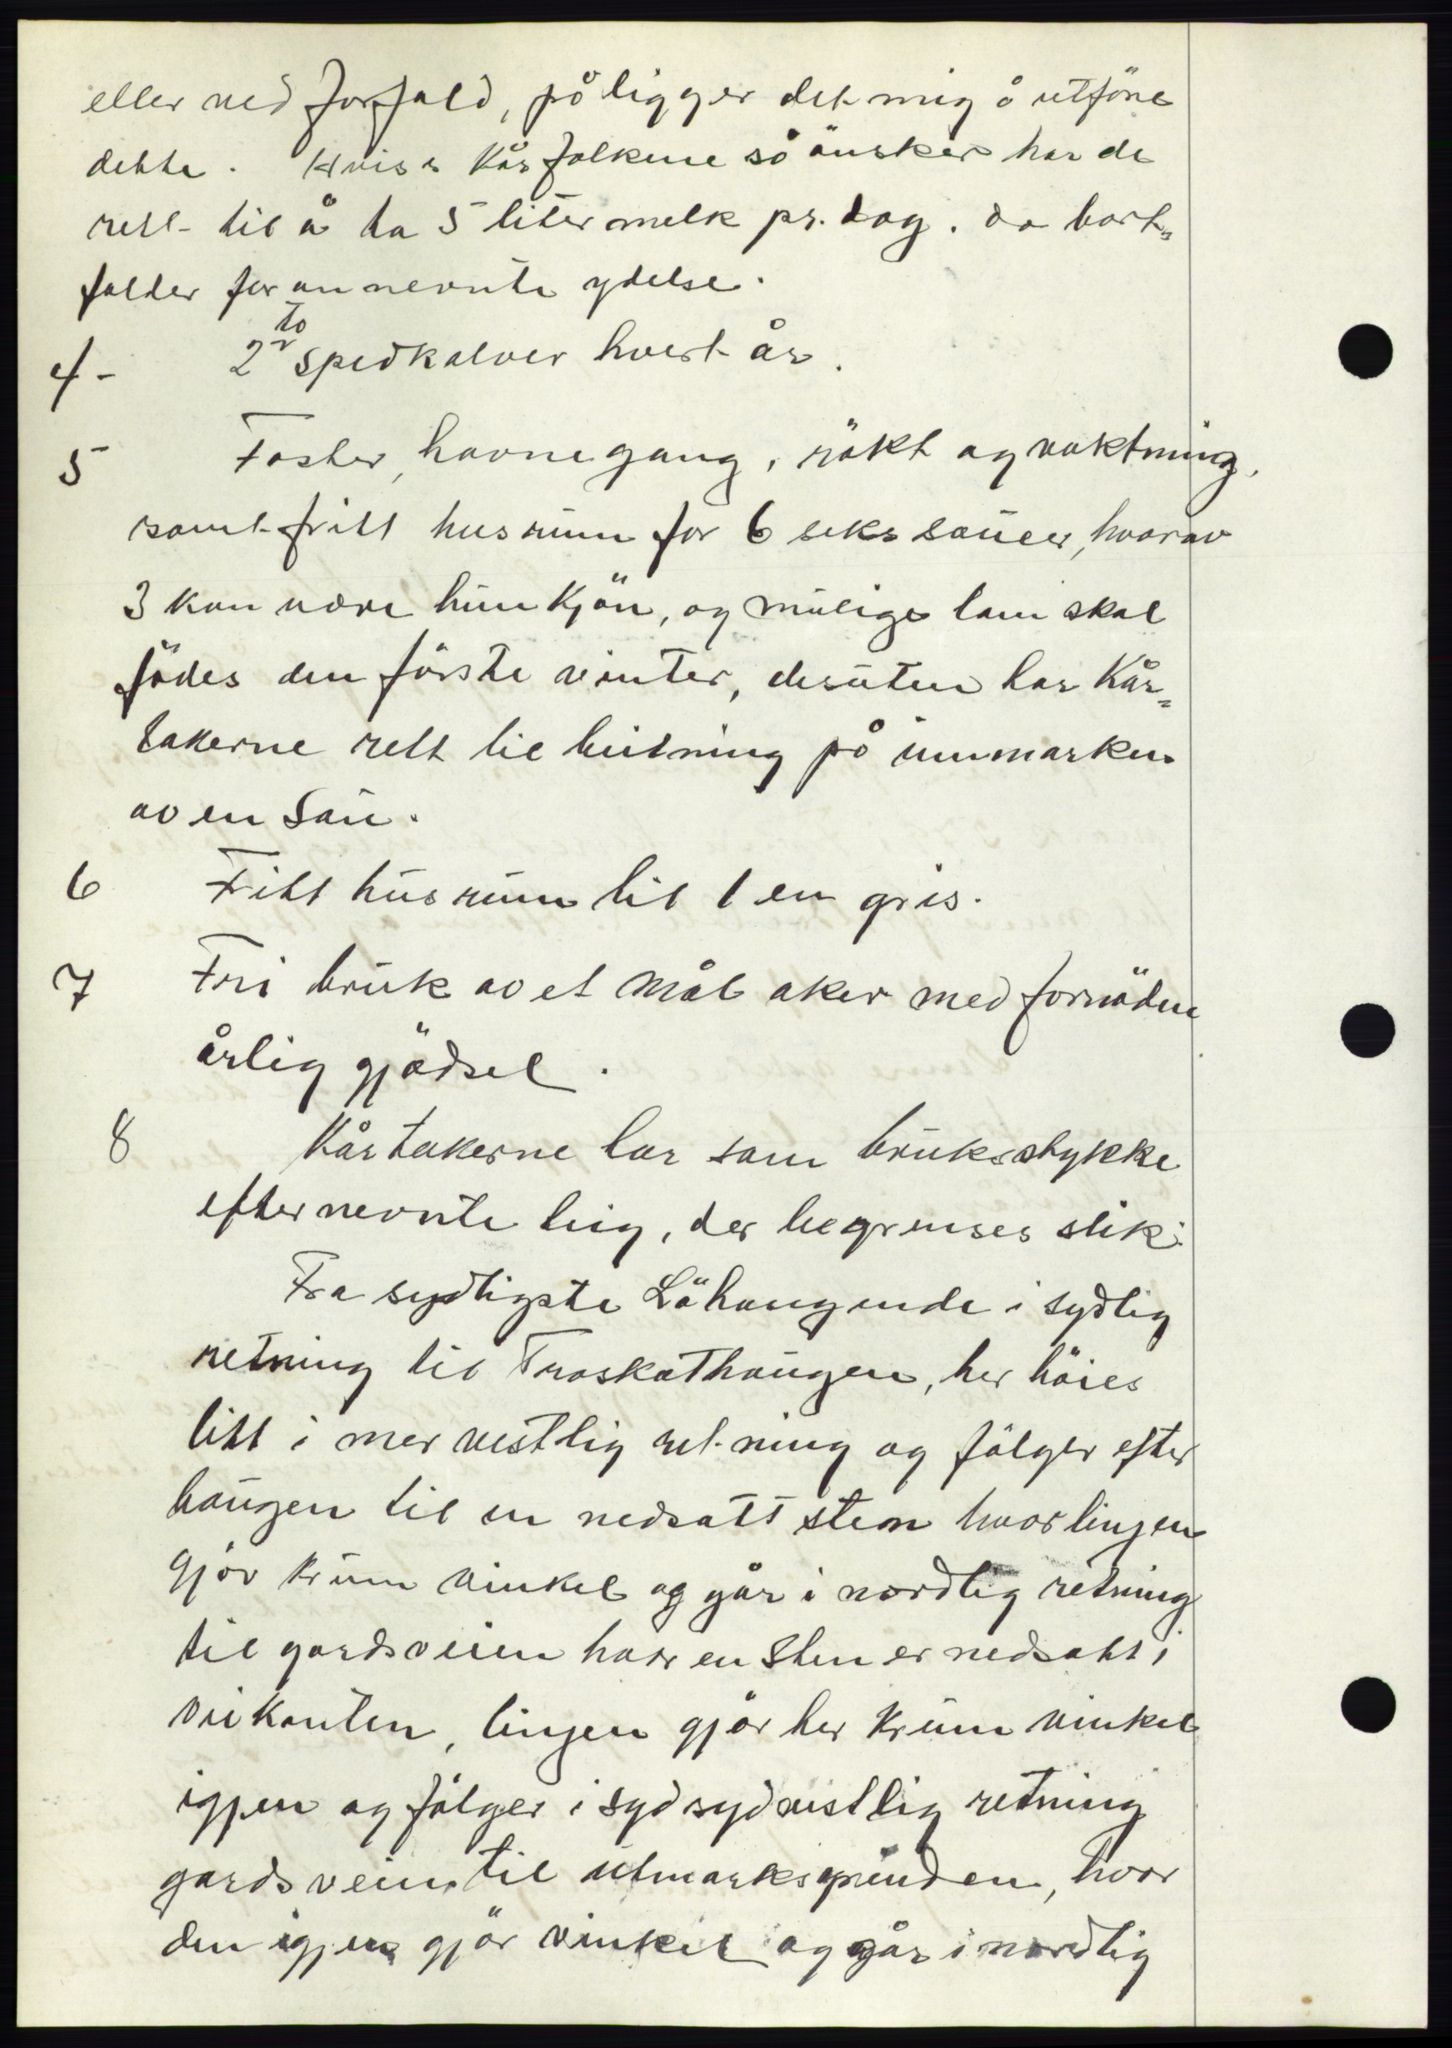 eller ved forfald, påligger det mig å utföre
dette. Hvis kårfolkene så önsker har de
rett til å ta 5 liter melk pr. dag. da bort-
falder forannevnte ydelse.
4- 2 to spedkalver hvert år.
5 Foster, havnegang, rökt og voktning,
samt fritt husrum for 6 seks sauer, hvorav
3 kan være hunkjön, og mulige lam skal
födes den förste vinter, desuten har Kår-
takerne rett til beitning på innmarken
av en Sau.
6 Fritt husrum til 1 en gris.
7 Fri bruk av et Mål aker med fornöden
årlig gjödsel.
8 Kårtakerne har som bruksstykke
efternevnte teig, der begrenses slik:
Fra sydligste Löhaugende i sydlig
retning til Traskathaugen, her höies
litt i mer vestlig retning og fölger efter
haugen til en nedsatt sten hvor linjen
gjör krum vinkel og går i nordlig retning
til gardsveien hvor en Sten er nedsatt i
veikanten, linjen gjör her krum vinkel
igjen og fölger i sydsydvestlig retning
gardsveien til utmarksgrinden, hvor
den igjen gjör vinkel og går i nordlig